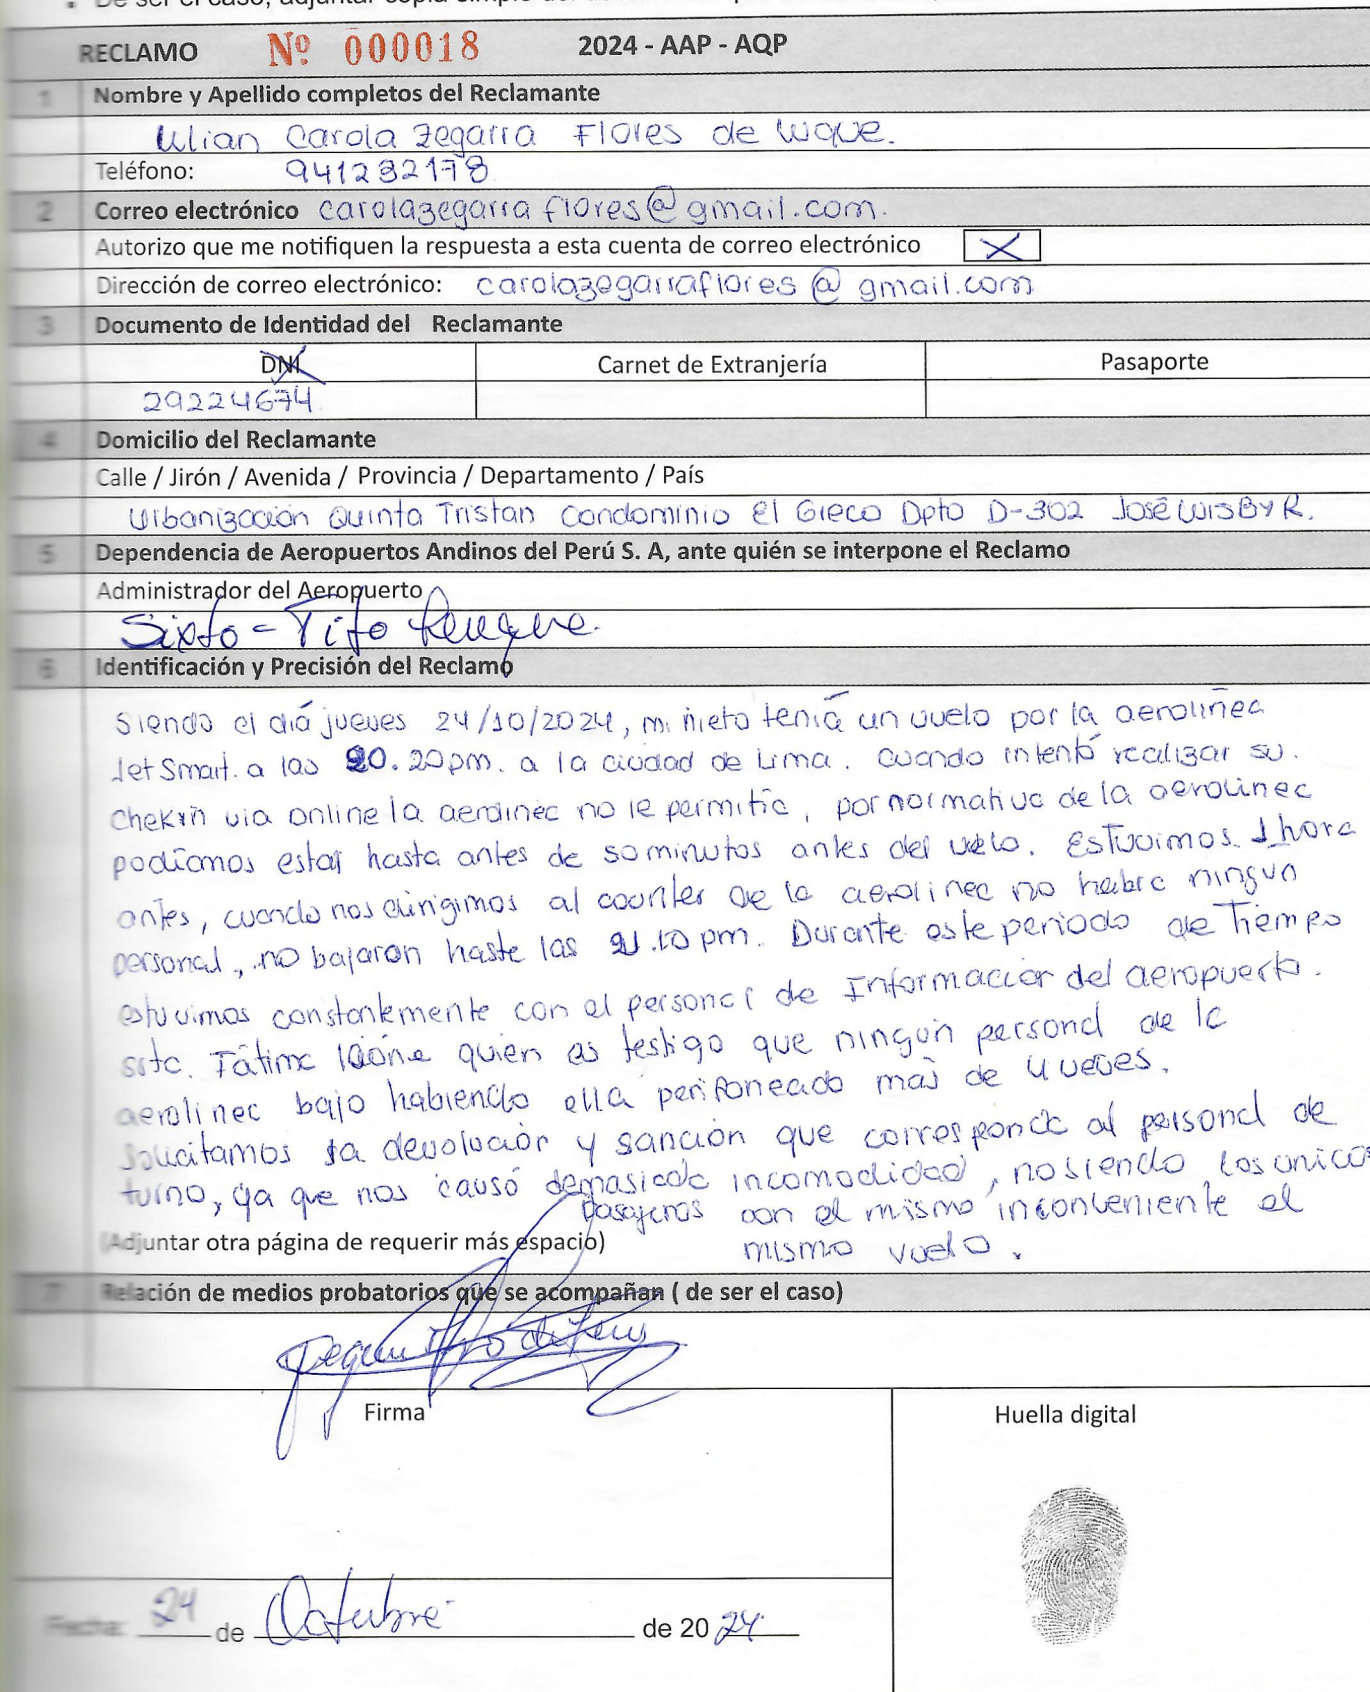 RECLAMO Nº 000018 2024 - AAP - AQP
1 Nombre y Apellido completos del Reclamante
Lilian Carola Zegarra Flores de Luque.
Teléfono: 941232178
2 Correo electrónico carolazegarraflores@gmail.com.
Autorizo que me notifiquen la respuesta a esta cuenta de correo electrónico X
Dirección de correo electrónico: carolazegarraflores@gmail.com
3 Documento de Identidad del Reclamante
DNI Carnet de Extranjería Pasaporte
29224674
4 Domicilio del Reclamante
Calle / Jirón / Avenida / Provincia / Departamento / País
Urbanización Quinta Tristan Condominio El Greco Dpto D-302 José Luis B y R.
5 Dependencia de Aeropuertos Andinos del Perú S. A, ante quién se interpone el Reclamo
Administrador del Aeropuerto
Sixto - Tito
6 Identificación y Precisión del Reclamo
Siendo el diá jueves 24/10/2024, mi nieto teniá un vuelo por la aerolinea
Jet Smart. a las 20.20pm. a la ciudad de Lima. Cuando intentó realizar su.
Chekin via online la aerolinea no le permitia, por normativa de la aerolinea
podiamos estar hasta antes de 50 minutos antes del vuelo. Estuvimos 1 hora
antes, cuando nos dirigimos al counter de la aerolinea no habia ningun
personal, no bajaron hasta las 21.10 pm. Durante este periodo de Tiempo
estuvimos constantemente con el personal de Información del aeropuerto.
srta. Fátima quien es testigo que ningún personal de la
aerolinea bajo habiendo ella perifoneado mas de 4 veces.
Solicitamos la devolución y sanción que corresponda al personal de
turno, ya que nos causó demasiada incomodidad, no siendo los unicos
pasajeros con el mismo inconveniente el
(Adjuntar otra página de requerir más espacio) mismo vuelo.
7 Relación de medios probatorios que se acompañan ( de ser el caso)
Firma Huella digital
Fecha: 24 de Octubre de 2024